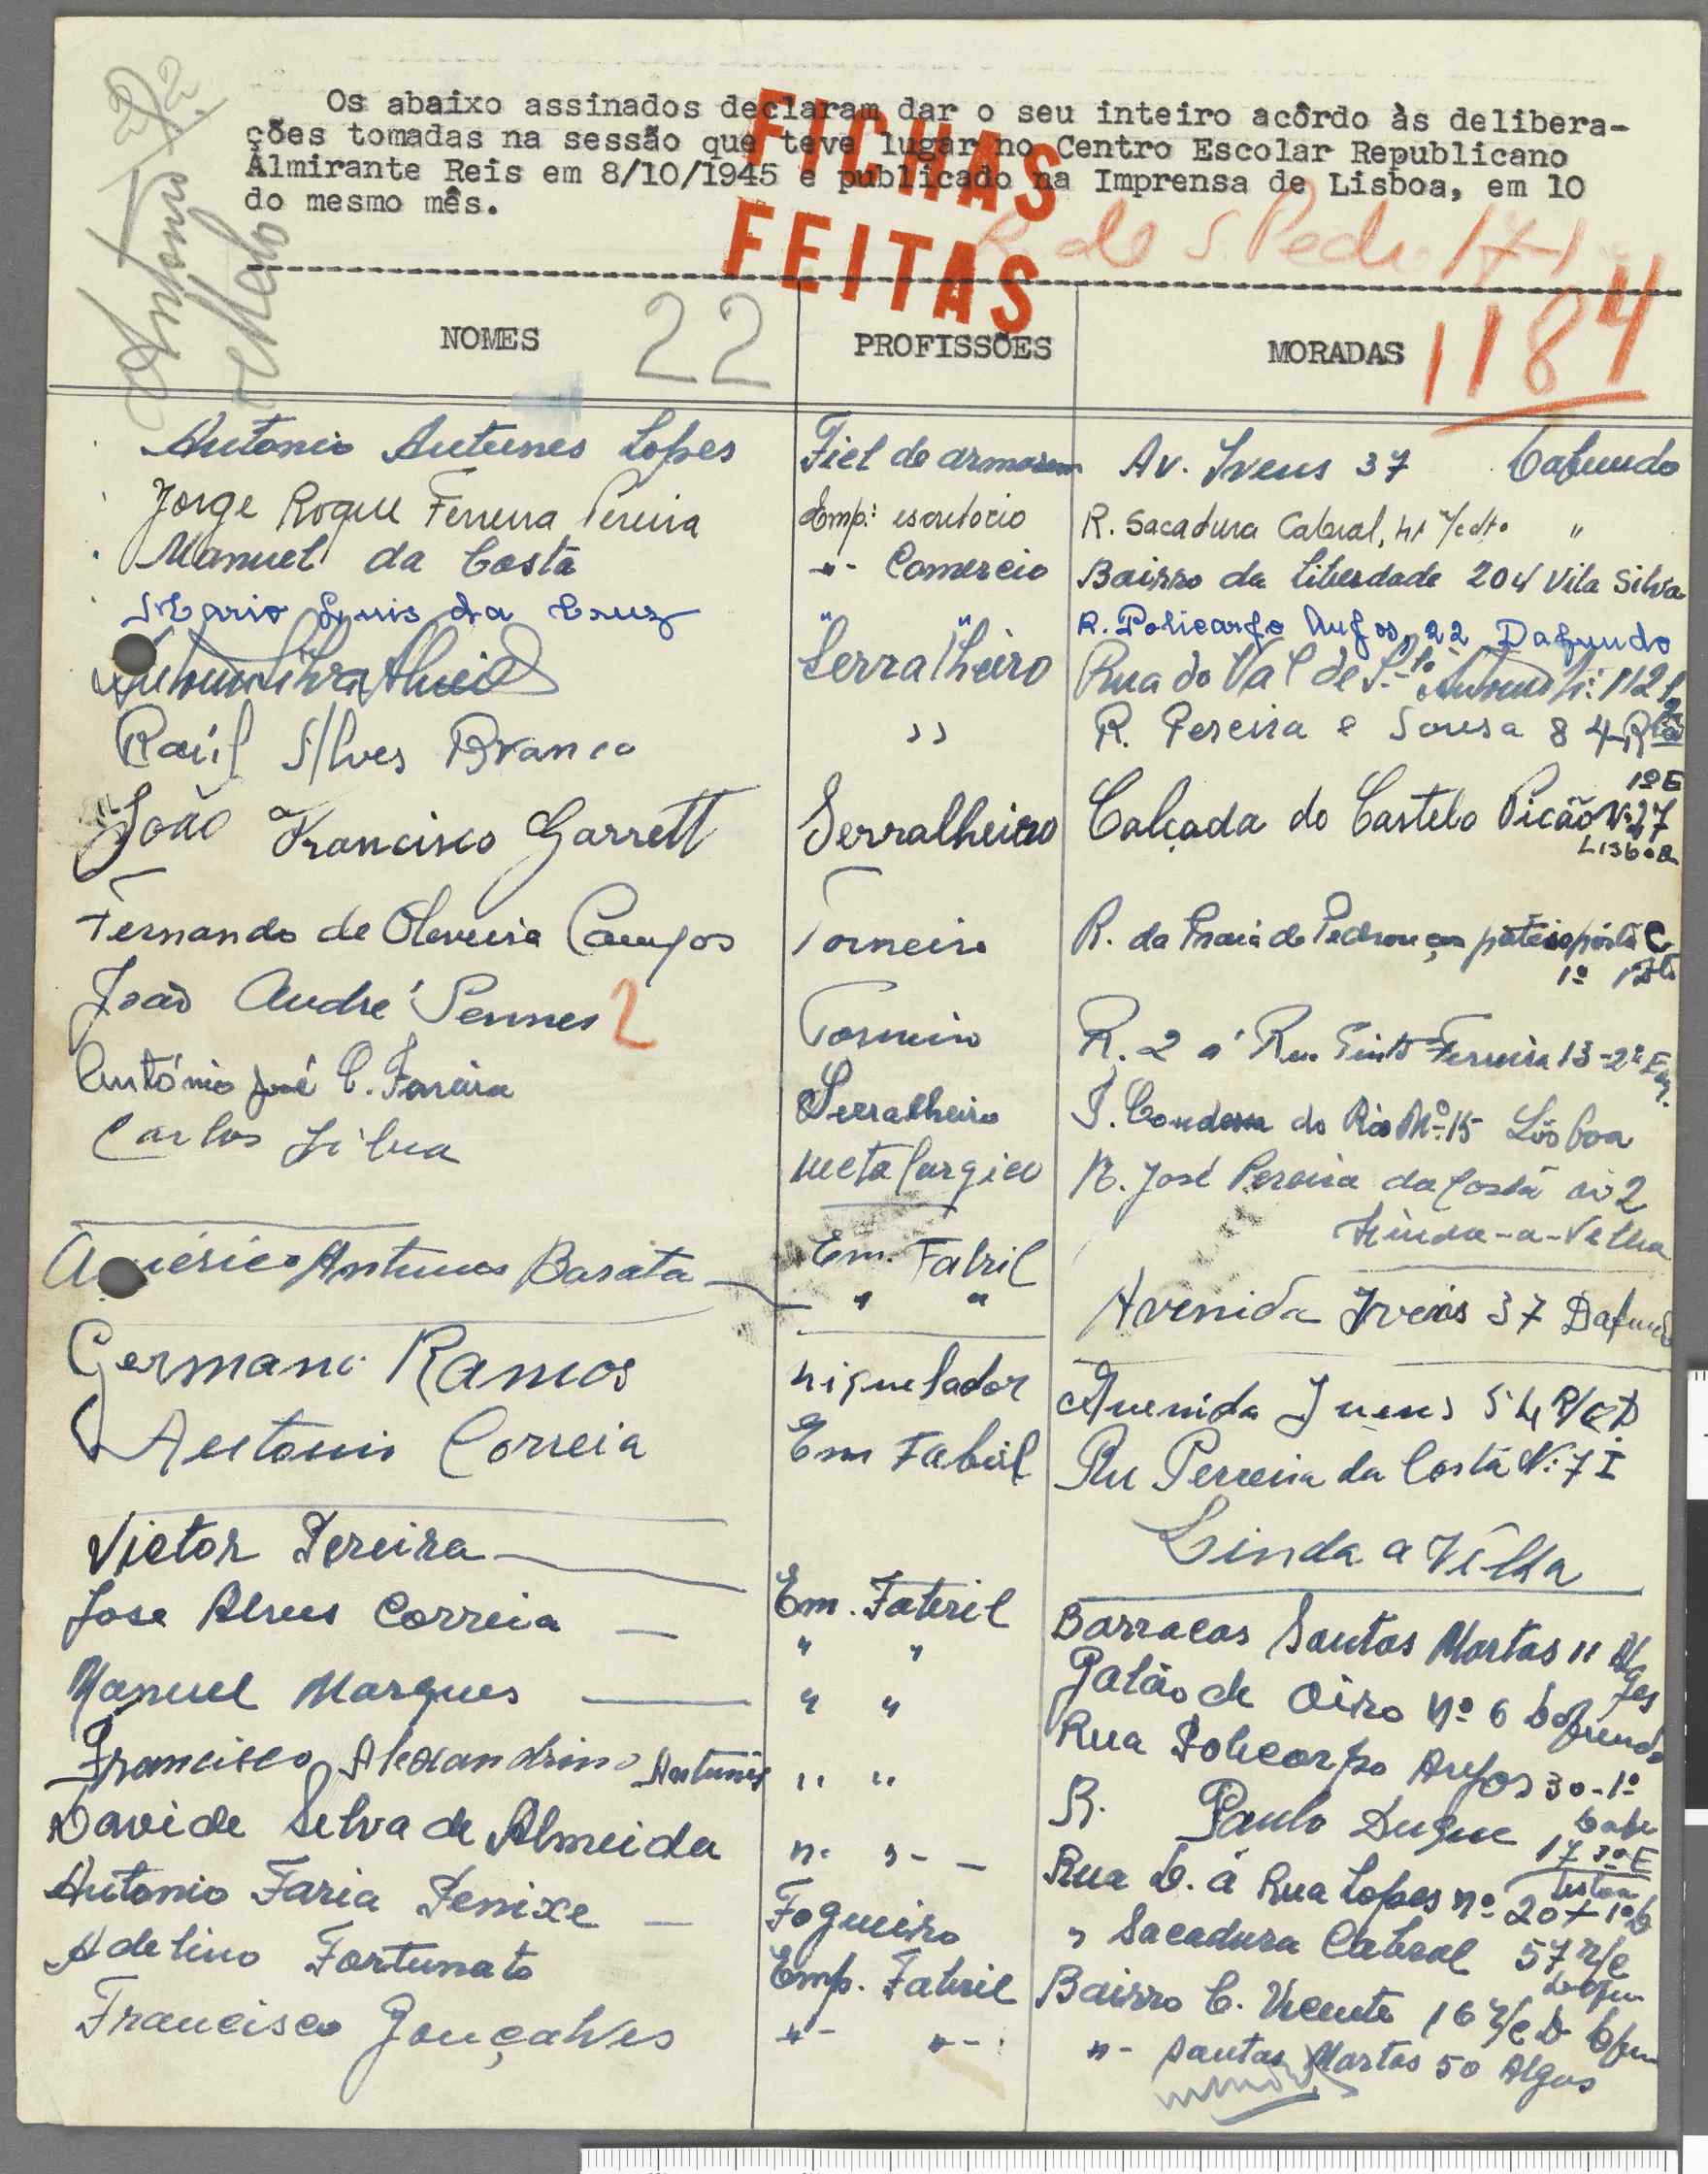 Os abaixo assinados declaram dar o seu inteiro acôrdo às delibera-
ções tomadas na sessão que teve lugar no Centro Escolar Republicano
Almirante Reis em 8/10/1945 e publicado na Imprensa de Lisboa, em 10
do mesmo mês.
FICHAS
FEITAS
R. de S. Pedro
1184
22
NOMES PROFISSÕES MORADAS
Antonio Antunes Lopes Fiel de armazem Av. Ivens 37 Dafundo
Jorge Roque Ferreira Pereira Emp: escritorio R. Sacadura Cabral, 41 r/c dto "
Manuel da Costa -"- Comercio Bairro da Liberdade 204 Vila Silva
Mario Luis da Cruz " " R. Policarpo Anjos, 22 Dafundo
Silva Serralheiro Rua do Val de Sto 112
Raúl Alves Branco " R. Pereira e Sousa 84
João Francisco Garrett Serralheiro Calçada do Castelo Picão Nº 27 1º E
Lisboa
Fernando de Oliveira Campos Torneiro R. da Praia de Pedrouços páteo porta C
1º
João André Pennes 2 Torneiro R. 2 á Rua Pinto Ferreira 13-2º Esq.
António José C. Ferreira Serralheiro do Rio Nº 15 Lisboa
Carlos Silva metalurgico R. José Pereira da Costa nº 2
Linda-a-Velha
Américo Antunes Barata Em. Fabril
" " Avenida Ivens 37 Dafundo
Germano Ramos niquelador Avenida Ivens 54 R/c D
Antonio Correia Em Fabril Ru Perreira da Costa Nº 7 I
Linda a Velha
Victor Pereira
Jose Alves Correia Em. Fabril Barracas Santas Martas 11 Alges
Manuel Marques " " Galão de Oiro nº 6 Dafundo
Francisco Alexandrino Antunes " " Rua Policarpo Anjos 30-1º
Davide Silva de Almeida " " R. Paulo Duque 17 3º E
Lisboa
Antonio Faria Penixe Fogueiro Rua D. á Rua Lopes nº 20
Adelino Fortunato Emp. Fabril " Sacadura Cabral 57 r/c
Francisco Gonçalves -"- -"- Bairro C. Vicente 16 r/c D
-"- Santas Martas 50 Alges